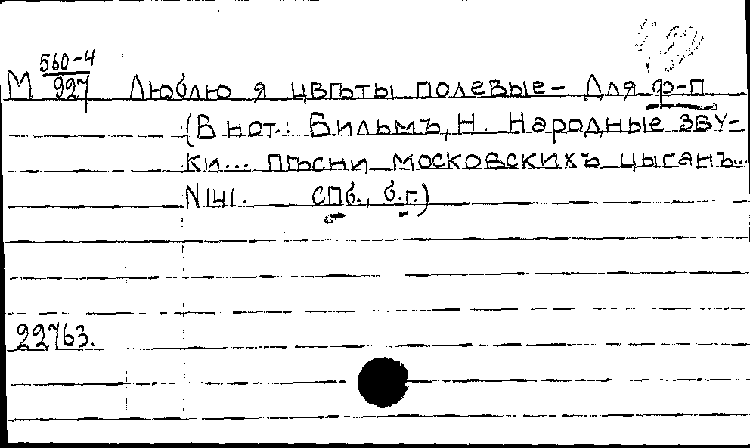 М 560-4
927 Люблю я цвѣты полевые- Для ф-п
(В нот.: Вильмъ, Н. Народные зву-
ки... пѣсни московскихъ цыганъ...
N141. СПб., б.г.)
22763.